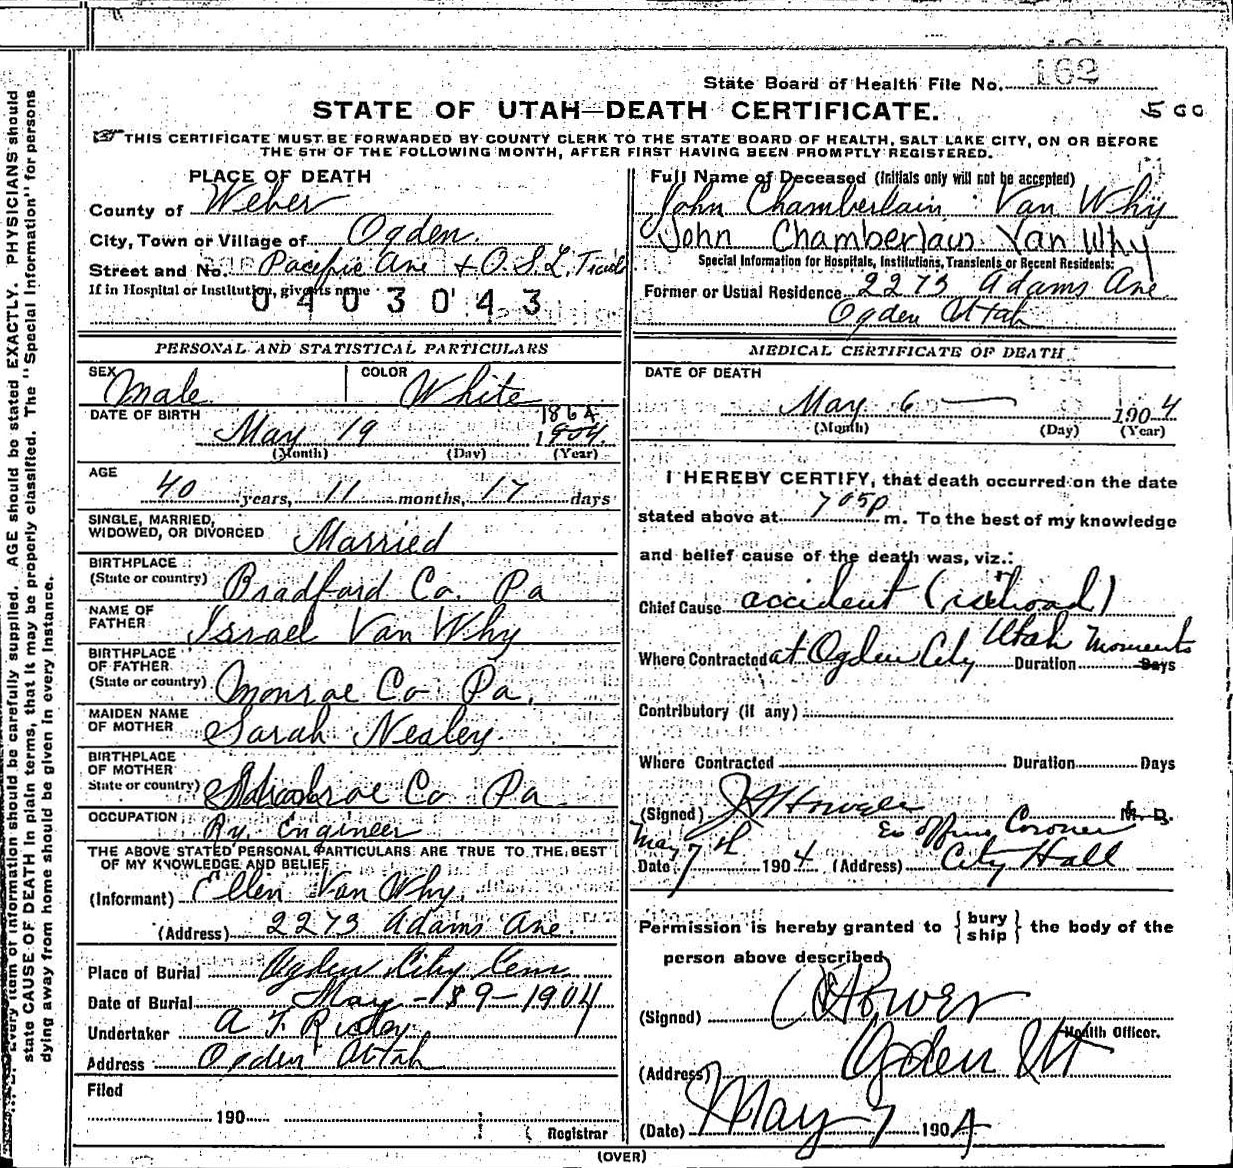 State Board of Health File No. 162
STATE OF UTAH—DEATH CERTIFICATE.
500
THIS CERTIFICATE MUST BE FORWARDED BY COUNTY CLERK TO THE STATE BOARD OF HEALTH, SALT LAKE CITY, ON OR BEFORE
THE 5TH OF THE FOLLOWING MONTH, AFTER FIRST HAVING BEEN PROMPTLY REGISTERED.
PLACE OF DEATH
County of Weber
City, Town or Village of Ogden.
Street and No. Pacific Ave + O. S. L.
If in Hospital or Institution, give its name
0403043
Full Name of Deceased (Initials only will not be accepted)
John Chamberlain Van Why
John Chamberlain Van Why
Special Information for Hospitals, Institutions, Transients or Recent Residents:
Former or Usual Residence 2273 Adams Ave
Ogden Utah
PERSONAL AND STATISTICAL PARTICULARS
SEX Male
COLOR White
DATE OF BIRTH
1864
May 19 1904
(Month) (Day) (Year)
AGE
40 years, 11 months, 17 days
SINGLE, MARRIED,
WIDOWED, OR DIVORCED Married
BIRTHPLACE
(State or country) Bradford Co. Pa
NAME OF
FATHER Israel Van Why
BIRTHPLACE
OF FATHER
(State or country) Monroe Co Pa.
MAIDEN NAME
OF MOTHER Sarah Nealey
BIRTHPLACE
OF MOTHER
State or country) Monroe Co Pa
OCCUPATION Ry. Engineer
THE ABOVE STATED PERSONAL PARTICULARS ARE TRUE TO THE BEST
OF MY KNOWLEDGE AND BELIEF
(Informant) Ellen Van Why.
(Address) 2273 Adams Ave.
Place of Burial Ogden City Cem
Date of Burial May 9-1904
Undertaker A F
Address Ogden Utah
Filed
190
Registrar
MEDICAL CERTIFICATE OF DEATH
DATE OF DEATH
May 6 1904
(Month) (Day) (Year)
I HEREBY CERTIFY, that death occurred on the date
stated above at 705p m. To the best of my knowledge
and belief cause of the death was, viz.:
Chief Cause accident (railroad)
Where Contracted at Ogden City Utah Duration Moments Days
Contributory (if any)
Where Contracted Duration Days
(Signed) M. D.
Ex officio Coroner
Date May 7th 1904 (Address) City Hall
Permission is hereby granted to {bury ship} the body of the
person above described,
(Signed)
Health Officer.
(Address) Ogden Ut
(Date) May 7 1904
(OVER)
Every item of information should be carefully supplied. AGE should be stated EXACTLY. PHYSICIANS should
state CAUSE OF DEATH in plain terms, that it may be properly classified. The "Special Information" for persons
dying away from home should be given in every instance.